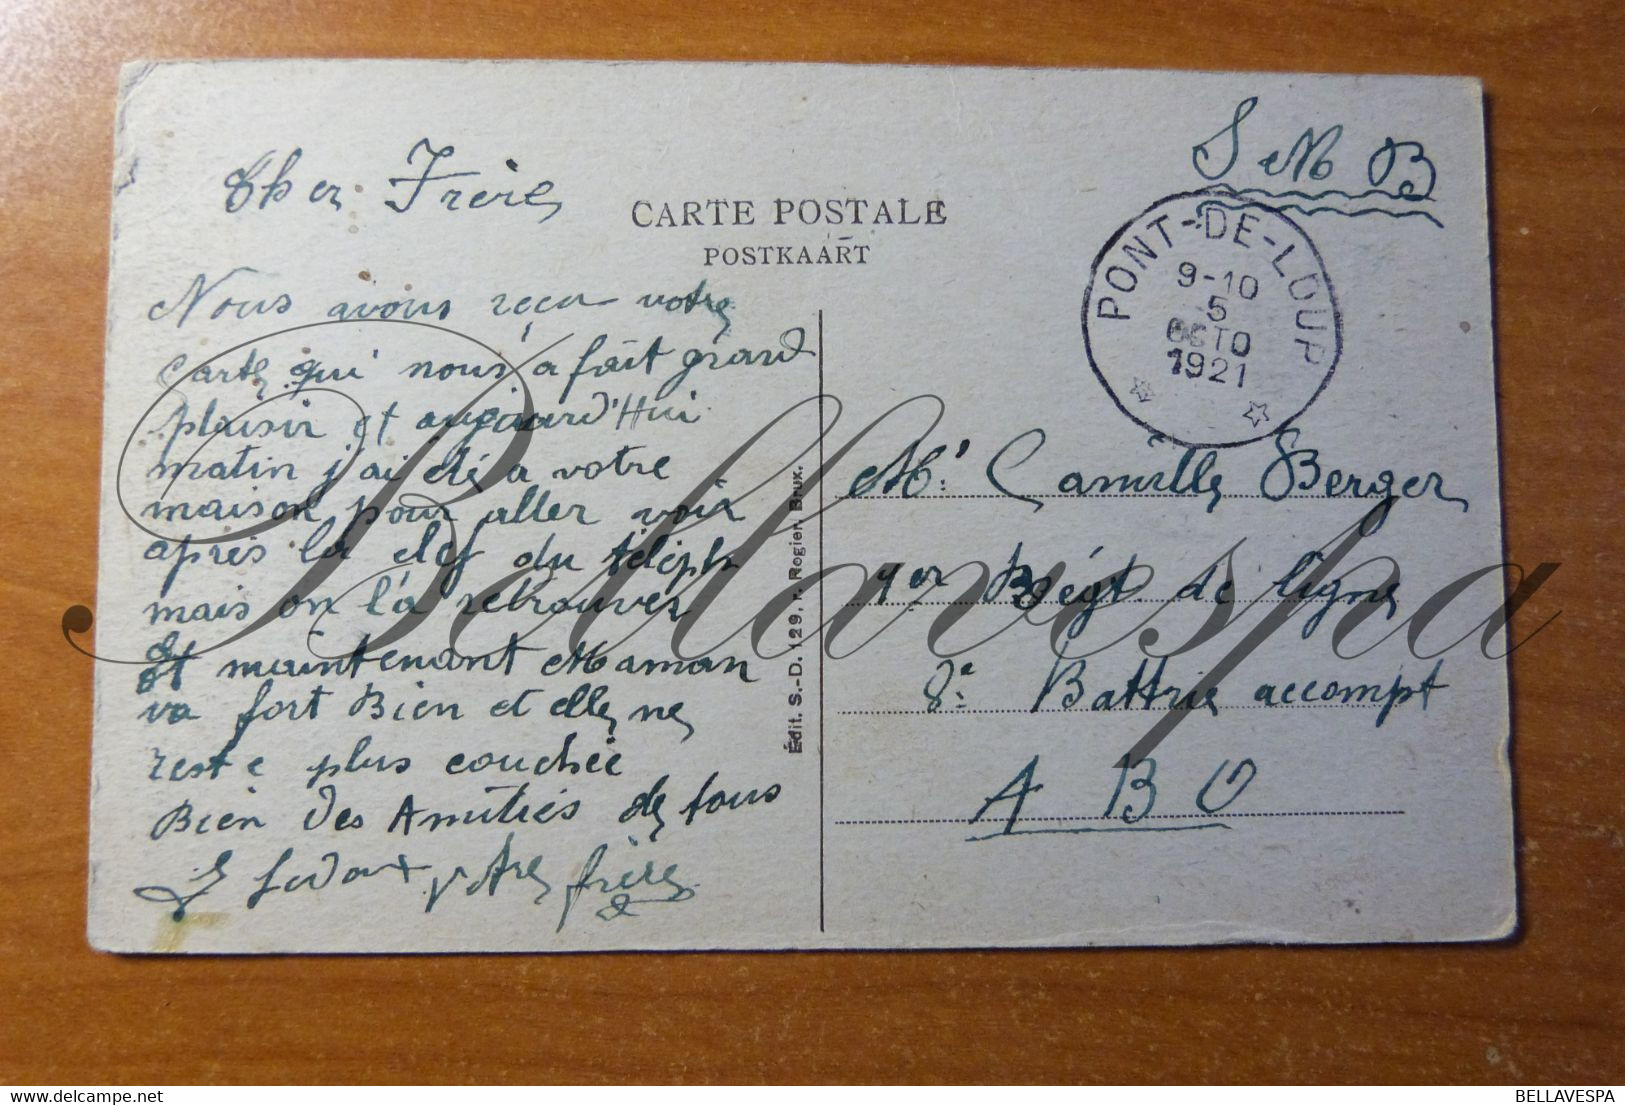 S M B
Cher Frère
CARTE POSTALE
POSTKAART
PONT-DE-LOUP
9-10
5
OCTO
1921
Nous avons reçu votre
carte qui nous a fait grand
plaisir et aujourd'Hui
matin j'ai été a votre
maison pour aller voir
après la clef du téléph
mais on l'a retrouver
et maintenant Maman
va fort Bien et elle ne
reste plus couchée
Bien des Amitiés de tous
votre frère
Édit. S.-D. 129, r. Rogier. Brux.
Mr. Camille Berger
1er Régt. de ligne
8e Battrie accompt
A B O
Bellavespa
BELLAVESPA